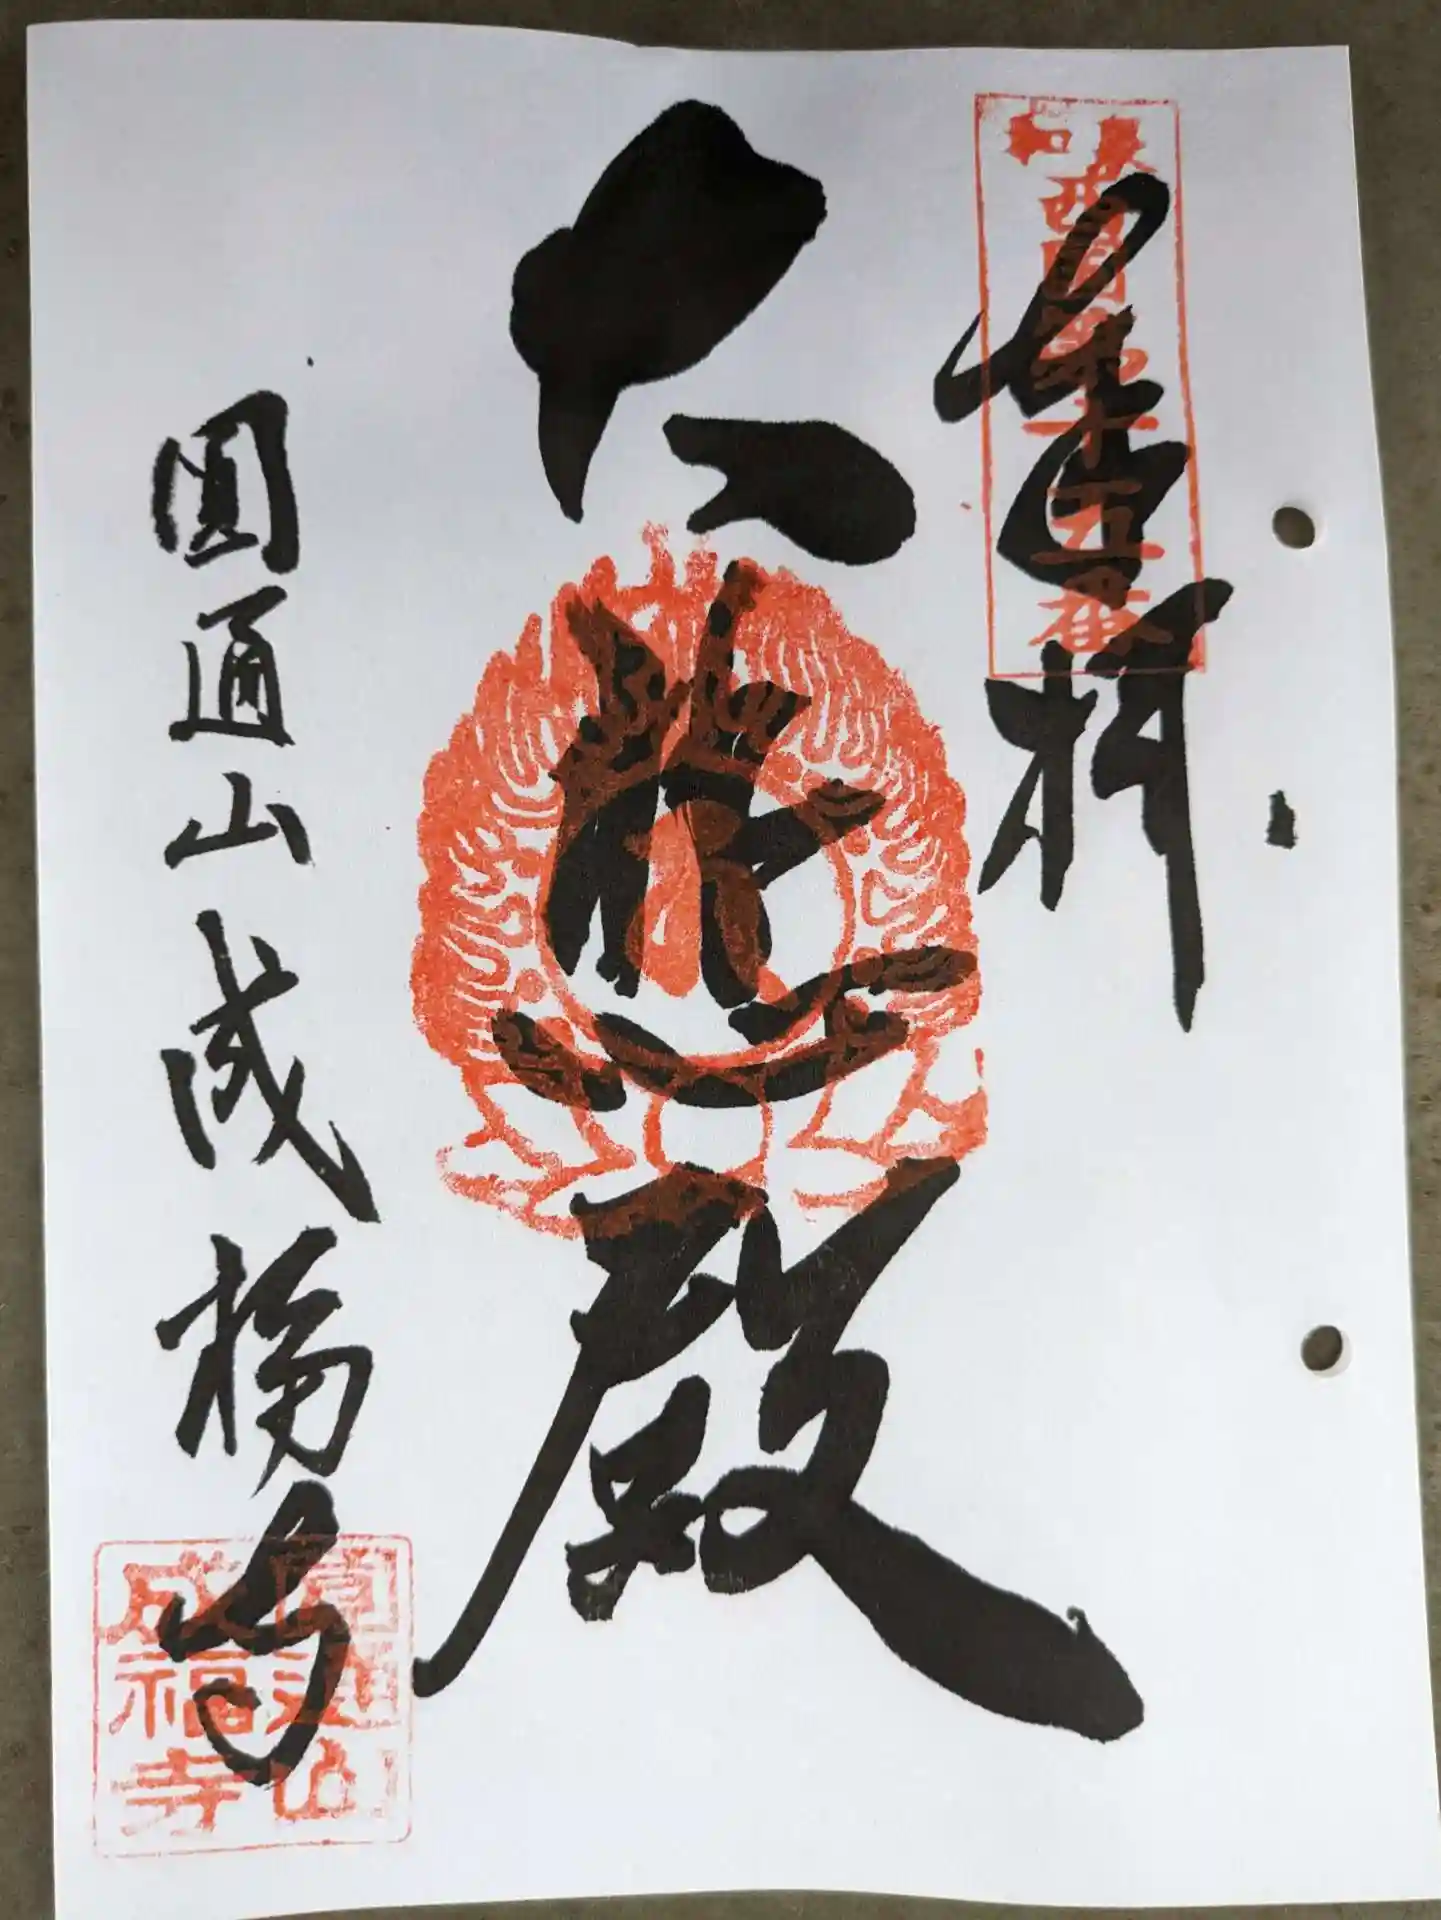 西國第十五番
奉拝
大悲殿
圓通山成福寺
圓通山
成福寺